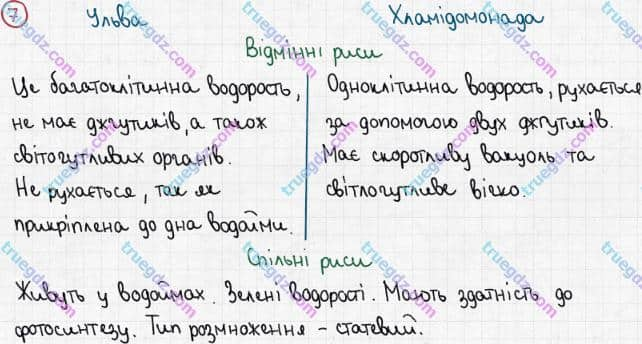 7 Ульва Хламідомонада
Відмінні риси
Це багатоклітинна водорость,
не має джгутиків, а також
світлочутливих органів.
Не рухається, так як
прикріплена до дна водойми.
Одноклітинна водорость, рухається
за допомогою двух джгутиків.
Має скоротливу вакуоль та
світлочутливе вічко.
Спільні риси
Живуть у водоймах. Зелені водорості. Мають здатність до
фотосинтезу. Тип розмноження - статевий.
truegdz.com